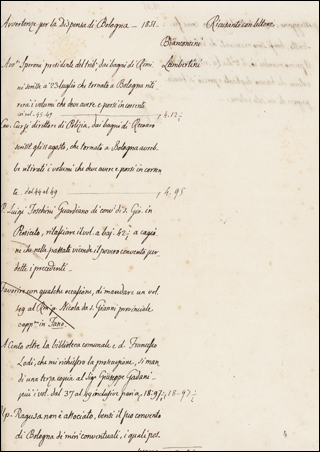 Avvertenze per la dispensa di Bologna - 1851.
Ricusanti con lettere.
Biancontini
Lambertini
Avv. Speroni presidente del trib. dai bagni di Rimi
ni scritto a' 23 luglio che tornato a Bologna riti
rerà i volumi che deve avere e porsi in corrente
coi vol. 45-49 4.12½
Cav. Curzi direttore di Polizia, dai bagni di Recoaro
scritto gli 11 agosto, che tornato a Bologna avreb
be ritirati i volumi che deve avere e porsi in corren
te dal 44 al 49 4.95
P. Luigi Toschini Guardiano di conv. di S. Gio. in
Persiceto, rilasciare il vol. a baj. 42½ a cagio
ne che nelle passate vicende il povero convento per
dette i precedenti
Favorire con qualche occasione, di mandare un vol.
49 al Nicola da S. Gianni provinciale
in Fano.
A Cento oltre la biblioteca comunale e d. Francesco
Lodi, che mi richiesero la protrazione, si man
di una terza copia al Sig. Giuseppe Gadani
poi i vol. dal 37 al 49 inclusive paoli 18:97½ 18-97½
Il p. Ragusa non è associato, bensì il suo convento
di Bologna di min. conventuali, i quali pos